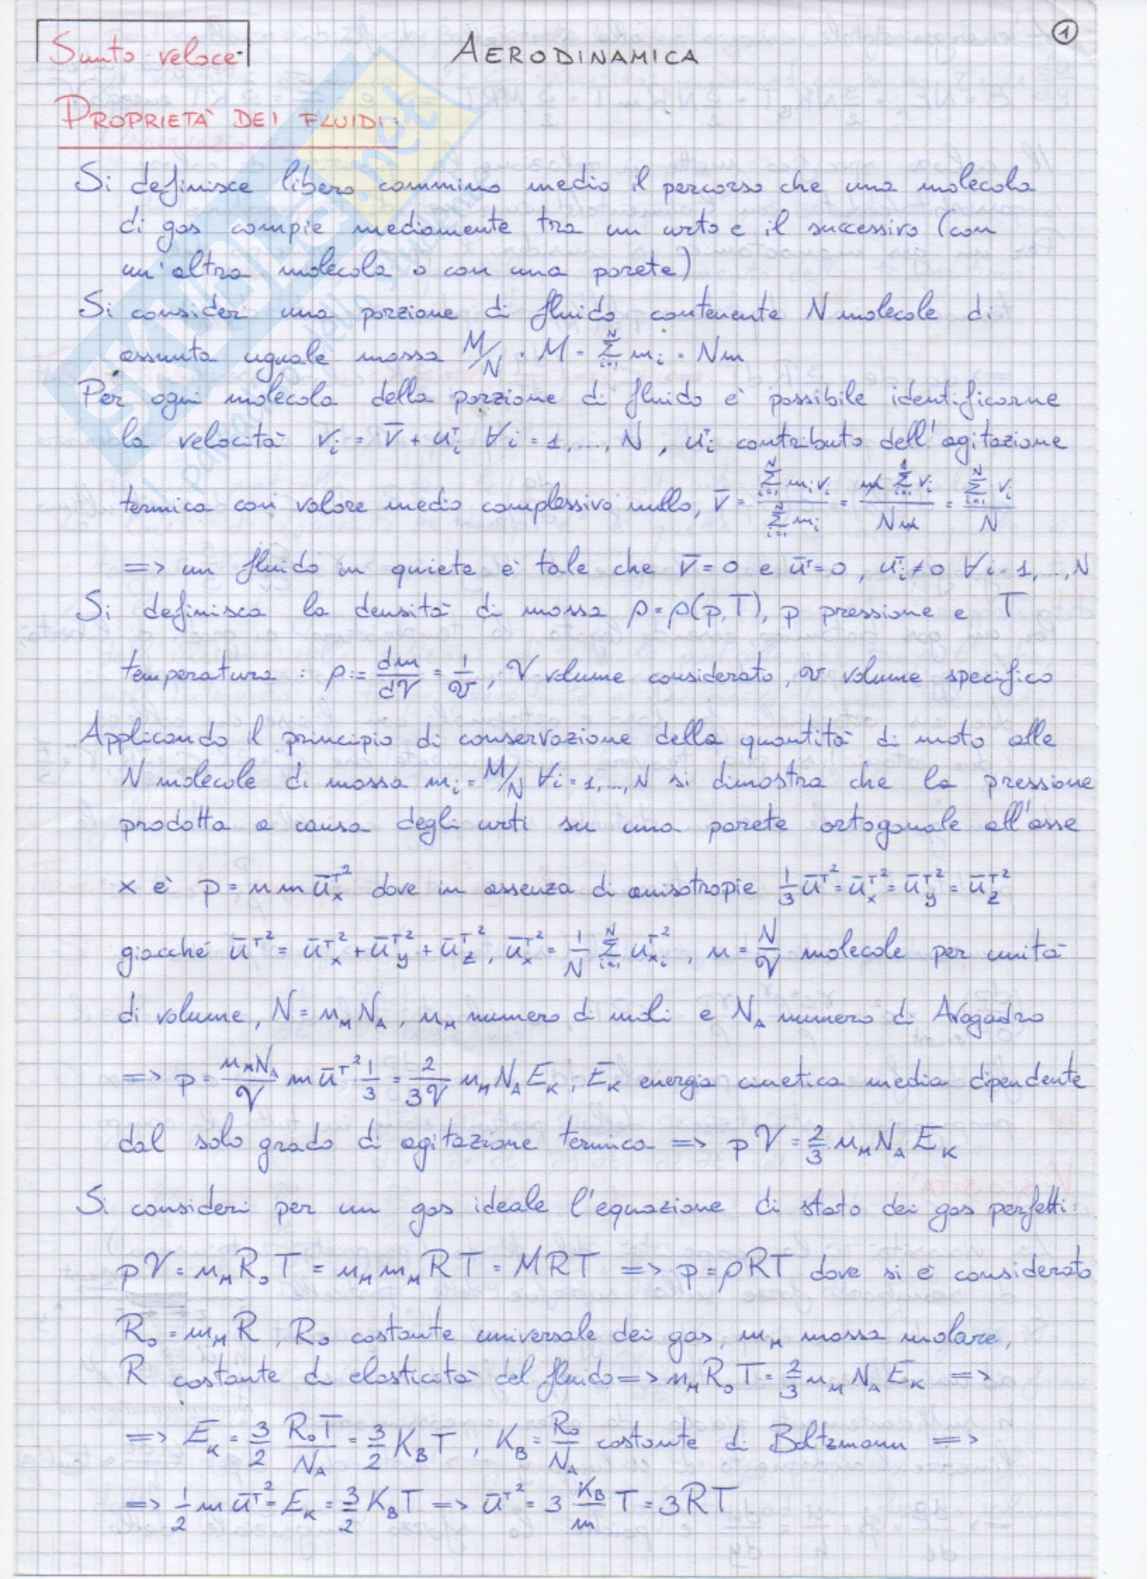 Sunto veloce
AERODINAMICA
1
PROPRIETÀ DEI FLUIDI:
Si definisce libero cammino medio il percorso che una molecola
di gas compie mediamente tra un urto e il successivo (con
un'altra molecola o con una parete)
Si consideri una porzione di fluido contenente N molecole di
assunta uguale massa M/N . M = Σ_{i=1}^{N} m_i = Nm
Per ogni molecola della porzione di fluido è possibile identificarne
la velocità v_i = v̄ + u_i^T ∀i = 1,...,N , u_i^T contributo dell'agitazione
termica con valore medio complessivo nullo, v̄ = (Σ_{i=1}^{N} m_i v_i)/(Σ_{i=1}^{N} m_i) = (m Σ_{i=1}^{N} v_i)/(Nm) = (Σ_{i=1}^{N} v_i)/N
=> un fluido in quiete è tale che v̄ = 0 e ū^T = 0 , u_i^T ≠ 0 ∀i = 1,...,N
Si definisca la densità di massa ρ = ρ(p,T), p pressione e T
temperatura : ρ := dm/d𝒱 = 1/v , 𝒱 volume considerato, v volume specifico
Applicando il principio di conservazione della quantità di moto alle
N molecole di massa m_i = M/N ∀i = 1,...,N si dimostra che la pressione
prodotta a causa degli urti su una parete ortogonale all'asse
x è p = n m ū_x^T² dove in assenza di anisotropie 1/3 ū^T² = ū_x^T² = ū_y^T² = ū_z^T²
giacché ū^T² = ū_x^T² + ū_y^T² + ū_z^T² , ū_x^T² = 1/N Σ_{i=1}^{N} u_{x_i}^T² , n = N/𝒱 molecole per unità
di volume, N = n_M N_A , n_M numero di moli e N_A numero di Avogadro
=> p = (n_M N_A)/𝒱 m ū^T² 1/3 = 2/(3𝒱) n_M N_A E_K , E_K energia cinetica media dipendente
dal solo grado di agitazione termica => p𝒱 = 2/3 n_M N_A E_K
Si consideri per un gas ideale l'equazione di stato dei gas perfetti:
p𝒱 = n_M R_0 T = n_M m_M RT = MRT => p = ρRT dove si è considerato
R_0 = m_M R , R_0 costante universale dei gas, m_M massa molare,
R costante di elasticità del fluido => n_M R_0 T = 2/3 n_M N_A E_K =>
=> E_K = 3/2 R_0T/N_A = 3/2 K_B T , K_B = R_0/N_A costante di Boltzmann =>
=> 1/2 m ū^T² = E_K = 3/2 K_B T => ū^T² = 3 K_B/m T = 3RT